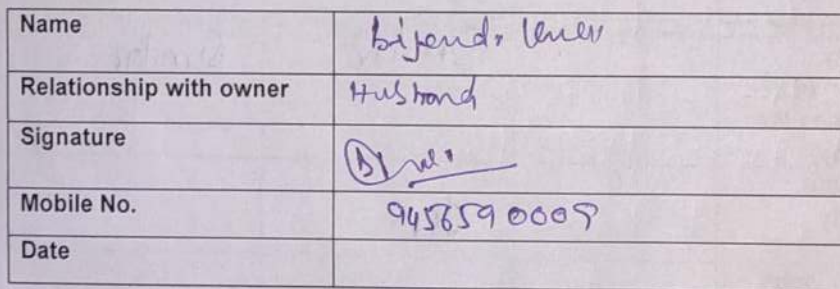 Name Bijendr
Relationship with owner Husband
Signature
Mobile No.
Date